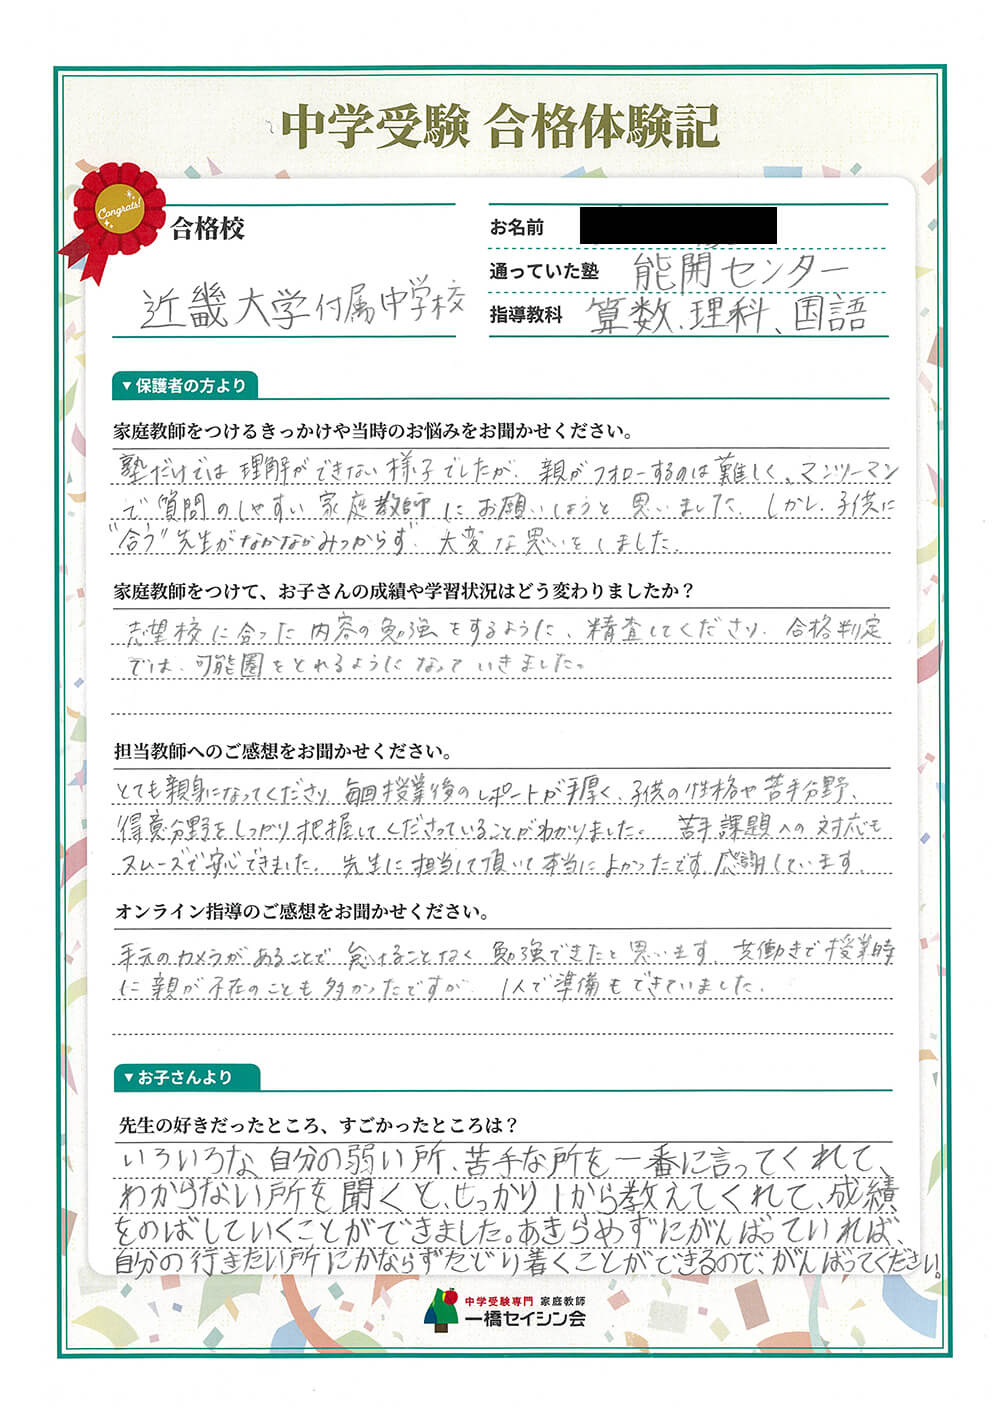 中学受験 合格体験記
Congrats!
合格校
近畿大学付属中学校
お名前
通っていた塾 能開センター
指導教科 算数、理科、国語
▼保護者の方より
家庭教師をつけるきっかけや当時のお悩みをお聞かせください。
塾だけでは理解ができない様子でしたが、親がフォローするのは難しく、マンツーマン
で質問のしやすい家庭教師にお願いしようと思いました。しかし、子供に
"合う"先生がなかなかみつからず、大変な思いをしました。
家庭教師をつけて、お子さんの成績や学習状況はどう変わりましたか？
志望校に合った内容の勉強をするように、精査してくださり、合格判定
では、可能圏をとれるようになっていきました。
担当教師へのご感想をお聞かせください。
とても親身になってくださり、毎回授業後のレポートが手厚く、子供の性格や苦手分野、
得意分野をしっかり把握してくださっていることがわかりました。苦手課題への対応も
スムーズで安心できました。先生に担当して頂いて本当によかったです。感謝しています。
オンライン指導のご感想をお聞かせください。
手元のカメラがあることで、怠けることなく勉強できたと思います。共働きで授業時
に親が不在のことも多かったですが、1人で準備もできていました。
▼お子さんより
先生の好きだったところ、すごかったところは？
いろいろな自分の弱い所、苦手な所を一番に言ってくれて、
わからない所を聞くと、せっかり1から教えてくれて、成績
をのばしていくことができました。あきらめずにがんばっていれば、
自分の行きたい所にかならずたどり着くことができるので、がんばってください。
中学受験専門 家庭教師
一橋セイシン会